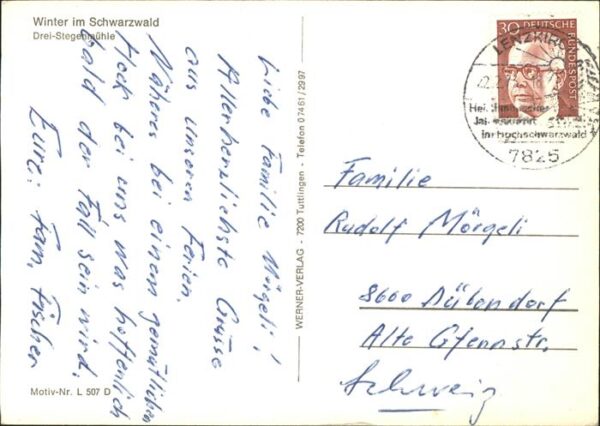 Winter im Schwarzwald
Drei-Stegenmühle
Liebe Familie Mörgeli!
Allerherzlichste Grüsse
aus unseren Ferien.
Näheres bei einem gemütlichen
Hock bei uns was hoffentlich
bald der Fall sein wird.
Eure: Fam. Fischer
Motiv-Nr. L 507 D
WERNER-VERLAG - 7200 Tuttlingen - Telefon 07461/2997
30 DEUTSCHE BUNDESPOST
LENZKIRCH
im Hochschwarzwald
7825
Familie
Rudolf Mörgeli
8600 Dübendorf
Alte Gfennstr.
Schweiz